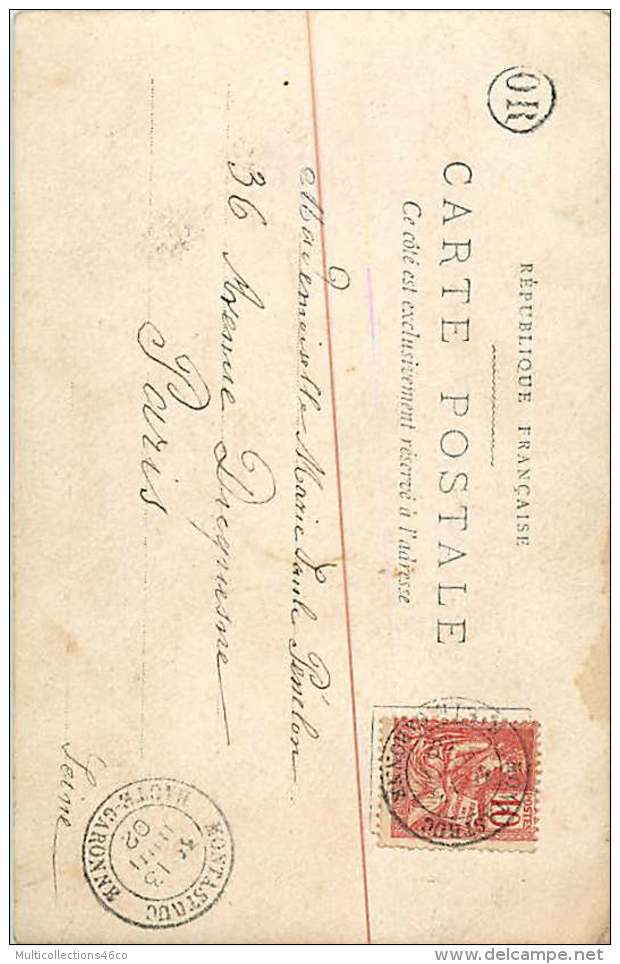 OR
RÉPUBLIQUE FRANÇAISE
CARTE POSTALE
Ce côté est exclusivement réservé à l'adresse
POSTES
10
Mademoiselle Marie Paule
36 Avenue Duquesne
Paris
Seine
MONTASTRUC
13
02
HAUTE-GARONNE
Multicollections46co
delcampe.net